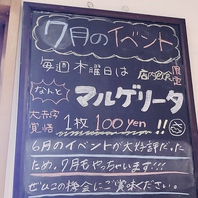 7月のイベント
毎週木曜日は 店内飲食限定
なんと マルゲリータ
大赤字覚悟 1枚100yen!!
6月のイベントが大好評だった
ため、7月もやっちゃいます!!!
ぜひこの機会にご賞味ください。